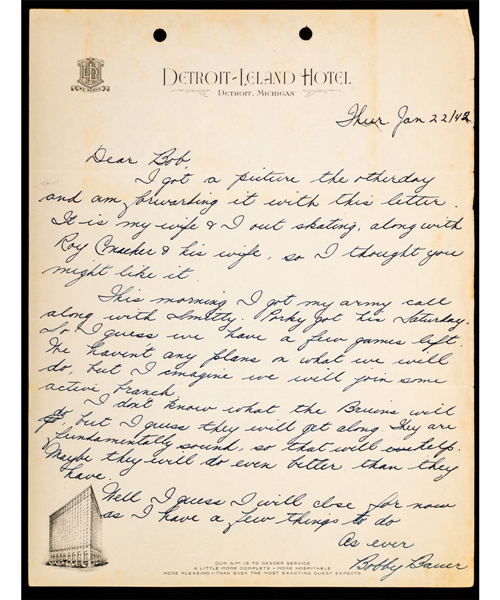 WE SERVE
DETROIT-LELAND HOTEL
DETROIT, MICHIGAN
Thur Jan 22/42
Dear Bob
I got a picture the otherday
and am forwarding it with this letter.
It is my wife & I out skating, along with
Roy Conacher & his wife, so I thought you
might like it.
This morning I got my army call
along with Smitty. Porky got his Saturday.
So I guess we have a few games left.
We havent any plans on what we will
do, but I imagine we will join some
active branch.
I don't know what the Bruins will
do, but I guess they will get along. They are
fundamentally sound, so that will help.
Maybe they will do even better than they
have.
Well I guess I will close for now
as I have a few things to do
As ever
Bobby Bauer
OUR AIM IS TO RENDER SERVICE
A LITTLE MORE COMPLETE - MORE HOSPITABLE
MORE PLEASING - THAN EVEN THE MOST EXACTING GUEST EXPECTS